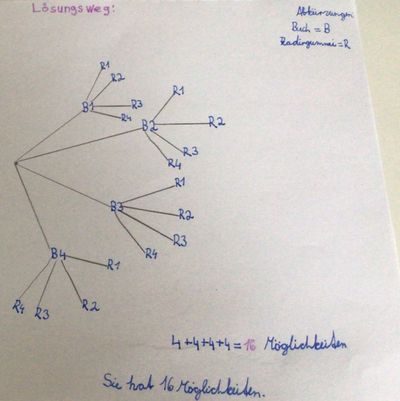 Lösungsweg:
Abkürzungen
Buch = B
Radiergummi = R
R1
R2
B1
R3
R4
R1
B2
R2
R3
R4
R1
B3
R2
R3
R4
B4
R1
R4
R3
R2
4+4+4+4 = 16 Möglichkeiten
Sie hat 16 Möglichkeiten.